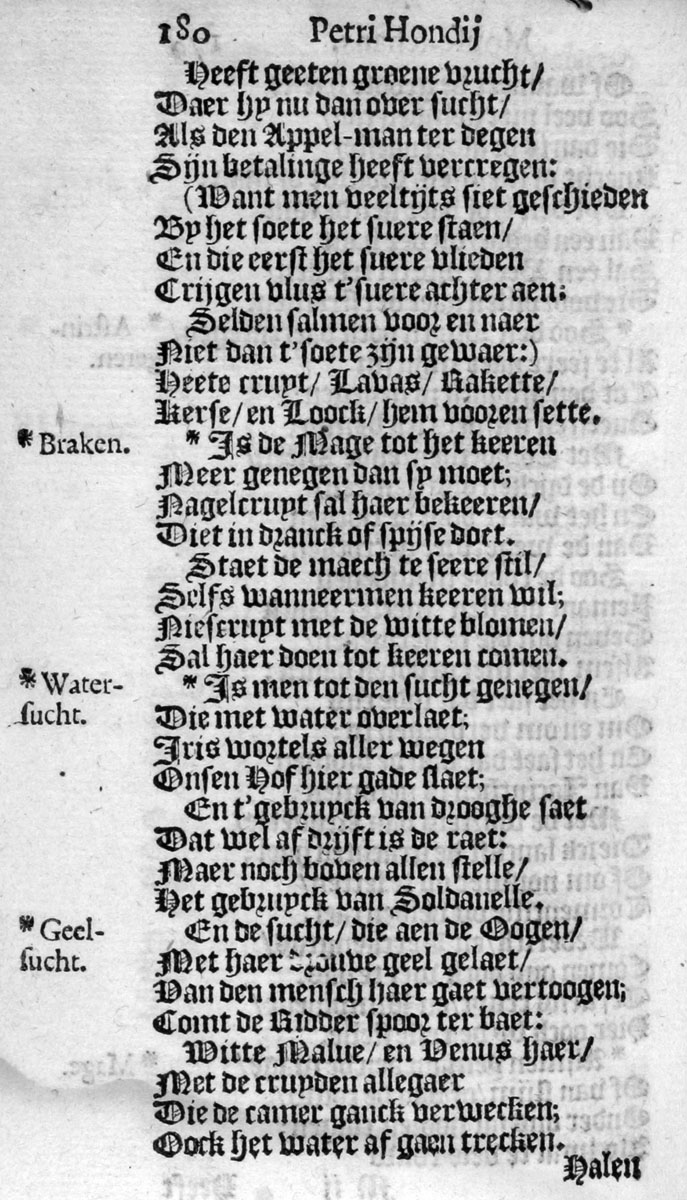 180 Petri Hondij
Heeft geeten groene vrucht/
Daer hy nu dan over sucht/
Als den Appel-man ter degen
Sijn betalinge heeft vercregen:
(Want men veeltijts siet geschieden
By het soete het suere staen/
En die eerst het suere vlieden
Crijgen vlus t'suere achter aen:
Selden salmen voor en naer
Niet dan t'soete zijn gewaer:)
Heete cruyt/ Lavas/ Rakette/
Kerse/ en Loock/ hem vooren sette.
* Braken.
* Is de Mage tot het keeren
Meer genegen dan sy moet;
Nagelcruyt sal haer bekeeren/
Diet in dranck of spijse doet.
Staet de maech te seere stil/
Selfs wanneermen keeren wil;
Niescruyt met de witte blomen/
Sal haer doen tot keeren comen.
* Water-
sucht.
* Is men tot den sucht genegen/
Die met water overlaet;
Iris wortels aller wegen
Onsen Hof hier gade slaet;
En t'gebruyck van drooghe saet
Dat wel af drijft is de raet:
Maer noch boven allen stelle/
Het gebruyck van Soldanelle.
* Geel-
sucht.
En de sucht/ die aen de Oogen/
Met haer drouve geel gelaet/
Van den mensch haer gaet vertoogen;
Comt de Ridder spoor ter baet:
Witte Malue/ en Venus haer/
Met de cruyden allegaer
Die de camer ganck verwecken;
Oock het water af gaen trecken.
Halen